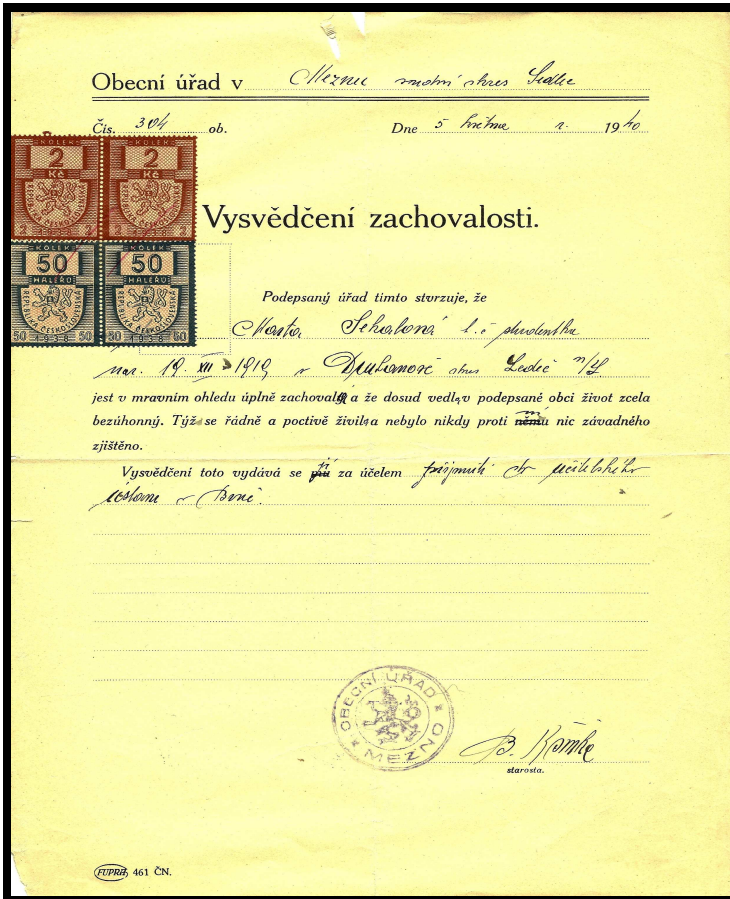 Obecní úřad v Meznu soudní okres Sedlec
Čís. 304 ob. Dne 5 května r. 1940
KOLEK KOLEK
2 2
Kč Kč
REPUBLIKA ČESKOSLOVENSKÁ REPUBLIKA ČESKOSLOVENSKÁ
2 1938 2 2 1938 2
KOLEK KOLEK
50 50
HALÉŘŮ HALÉŘŮ
REPUBLIKA ČESKOSLOVENSKÁ REPUBLIKA ČESKOSLOVENSKÁ
50 1938 50 50 1938 50
Vysvědčení zachovalosti.
Podepsaný úřad timto stvrzuje, že
Marta t.č studentka
nar. 19. XII 1919 v okres Ledeč n/S
jest v mravním ohledu úplně zachovalá a že dosud vedla v podepsané obci život zcela
bezúhonný. Týž se řádně a poctivě živil, a nebylo nikdy proti ní nic závadného
zjištěno.
Vysvědčení toto vydává se jí za účelem přijmutí do učitelského
ústavu v Brně.
OBECNÍ ÚŘAD
MEZNO
B.
starosta.
FUPRA, 461 ČN.